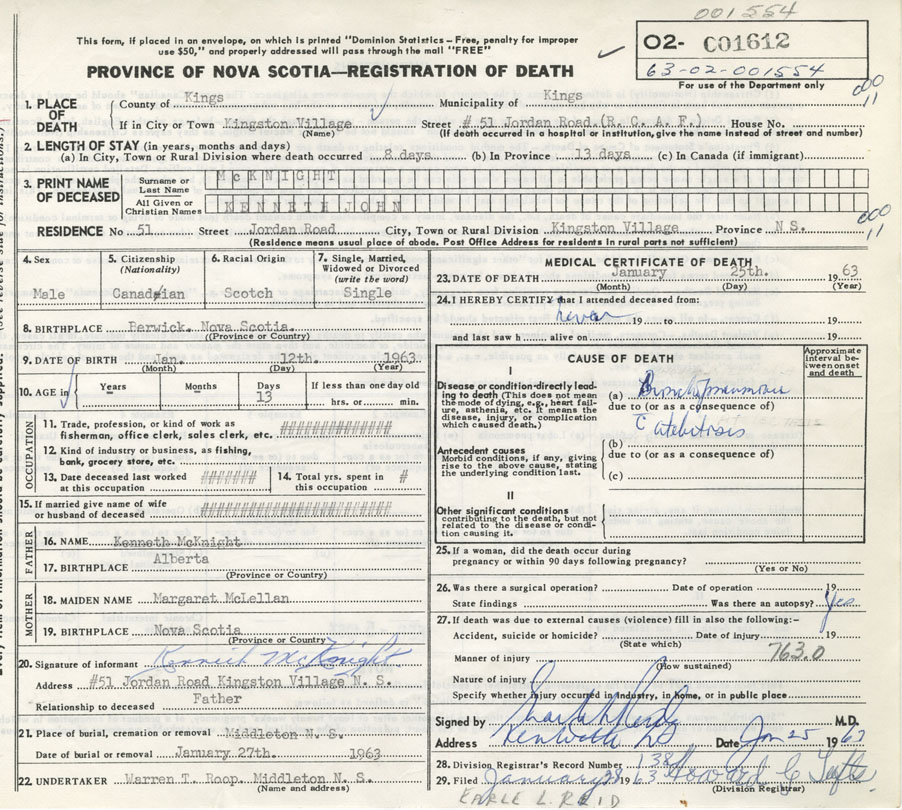 001554
This form, if placed in an envelope, on which is printed "Dominion Statistics – Free, penalty for improper
use $50," and properly addressed will pass through the mail "FREE"
O2- C01612
63-02-001554
For use of the Department only
PROVINCE OF NOVA SCOTIA—REGISTRATION OF DEATH
1. PLACE OF DEATH
County of Kings Municipality of Kings
If in City or Town Kingston Village Street # 51 Jordan Road.(R.C.A.F.) House No.
(Name) (If death occurred in a hospital or institution, give the name instead of street and number)
2. LENGTH OF STAY (in years, months and days)
(a) In City, Town or Rural Division where death occurred 8 days (b) In Province 13 days (c) In Canada (if immigrant)
3. PRINT NAME OF DECEASED
Surname or Last Name McKNIGHT
All Given or Christian Names KENNETH JOHN
RESIDENCE No 51 Street Jordan Road City, Town or Rural Division Kingston Village Province N.S.
(Residence means usual place of abode. Post Office Address for residents in rural parts not sufficient)
4. Sex Male
5. Citizenship (Nationality) Canadian
6. Racial Origin Scotch
7. Single, Married, Widowed or Divorced (write the word) Single
8. BIRTHPLACE Berwick. Nova Scotia.
(Province or Country)
9. DATE OF BIRTH Jan. 12th. 1963
(Month) (Day) (Year)
10. AGE in Years Months Days 13 If less than one day old hrs. or min.
OCCUPATION
11. Trade, profession, or kind of work as
fisherman, office clerk, sales clerk, etc. ################
12. Kind of industry or business, as fishing,
bank, grocery store, etc.
13. Date deceased last worked at this occupation #######
14. Total yrs. spent in this occupation #
15. If married give name of wife
or husband of deceased
FATHER
16. NAME Kenneth McKnight
17. BIRTHPLACE Alberta
(Province or Country)
MOTHER
18. MAIDEN NAME Margaret McLellan
19. BIRTHPLACE Nova Scotia
(Province or Country)
20. Signature of informant Kenneth McKnight
Address #51 Jordan Road Kingston Village N. S.
Relationship to deceased Father
21. Place of burial, cremation or removal Middleton N. S.
Date of burial or removal January 27th. 1963
22. UNDERTAKER Warren T. Roop. Middleton N. S.
(Name and address)
MEDICAL CERTIFICATE OF DEATH
23. DATE OF DEATH January 25th. 1963
(Month) (Day) (Year)
24. I HEREBY CERTIFY that I attended deceased from:
never 19 to 19
and last saw h alive on 19
CAUSE OF DEATH
Approximate interval between onset and death
I
Disease or condition directly leading to death (This does not mean the mode of dying, e.g., heart failure, asthenia, etc. It means the disease, injury, or complication which caused death.)
(a) Bronchopneumonia
due to (or as a consequence of)
(b)
Antecedent causes
Morbid conditions, if any, giving rise to the above cause, stating the underlying condition last.
due to (or as a consequence of)
(c)
II
Other significant conditions
contributing to the death, but not related to the disease or condition causing it.
25. If a woman, did the death occur during
pregnancy or within 90 days following pregnancy?
(Yes or No)
26. Was there a surgical operation? Date of operation 19
State findings Was there an autopsy? Yes
27. If death was due to external causes (violence) fill in also the following:-
Accident, suicide or homicide? Date of injury 19
(State which)
Manner of injury 763.0
(How sustained)
Nature of injury
Specify whether injury occurred in industry, in home, or in public place
Signed by M.D.
Address Date Jan 25 1963
28. Division Registrar's Record Number 138
29. Filed January 28 1963 Howard C Tufts
(Division Registrar)
EARLE L. REID